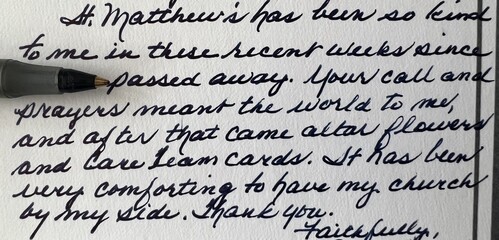 St. Matthew's has been so kind
to me in these recent weeks since
passed away. Your call and
prayers meant the world to me,
and after that came altar flowers
and Care Team cards. It has been
very comforting to have my church
by my side. Thank you.
Faithfully,